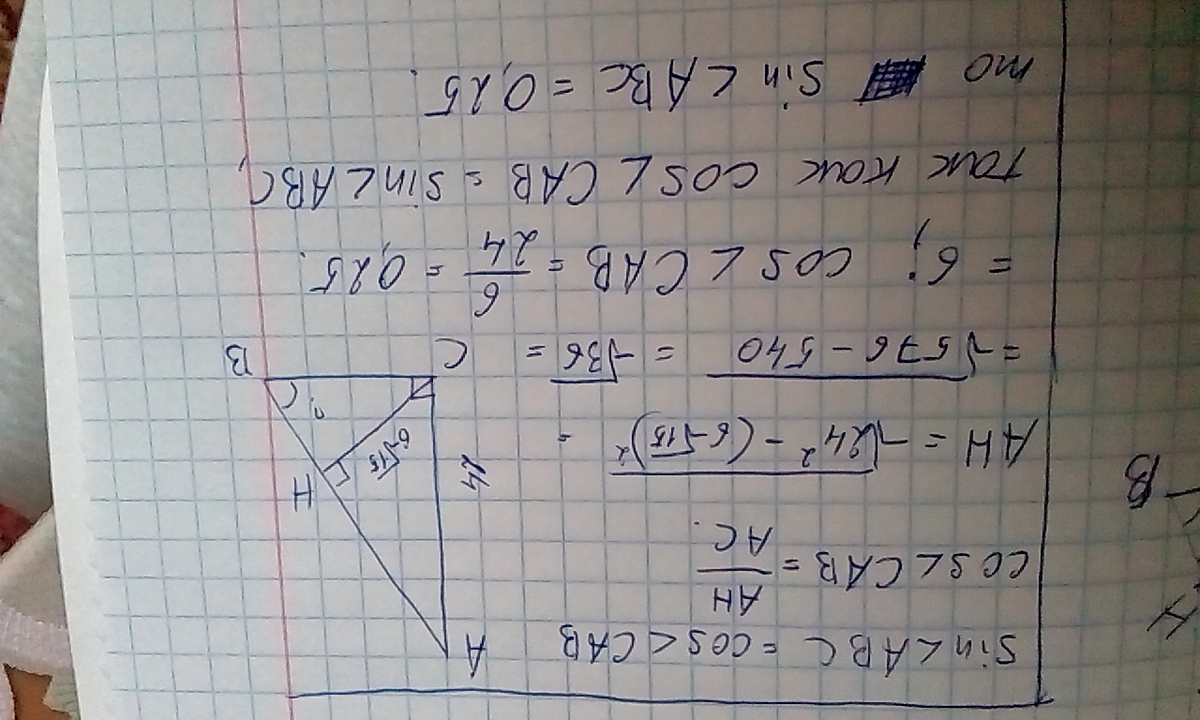 sin∠ABC = cos∠CAB
cos∠CAB = AH/AC.
AH = √(24² - (6√15)²) =
= √(576 - 540) = √36 =
= 6; cos∠CAB = 6/24 = 0,25.
так как cos∠CAB = sin∠ABC,
то sin∠ABC = 0,25.
A
24
H
6√15
?
C
B
H
B